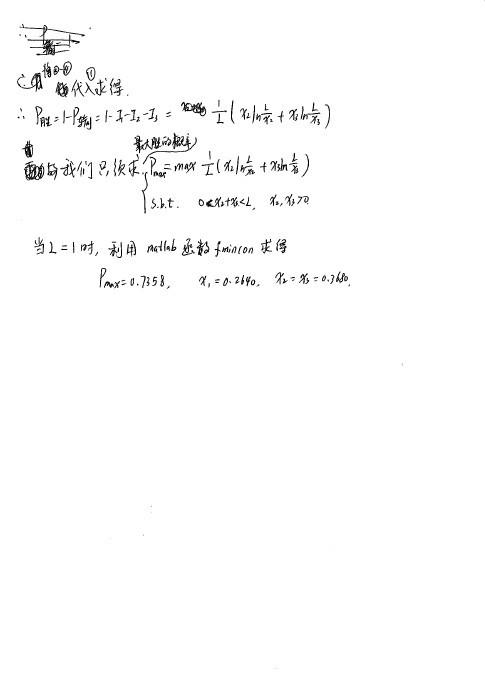 ∴
将②-④ ①
代入求得.
∴ P胜=1-P输=1-I₁-I₂-I₃ = 1/L (x₂ln L/x₂ + x₃ln L/x₃)
最大胜的概率
故我们只须求 { Pmax = max 1/L (x₂ln L/x₂ + x₃ln L/x₃)
s.b.t. 0<x₂+x₃<L, x₂,x₃>0
当L=1时, 利用 matlab 函数 fmincon 求得
Pmax=0.7358, x₁=0.2640, x₂=x₃=0.3680.